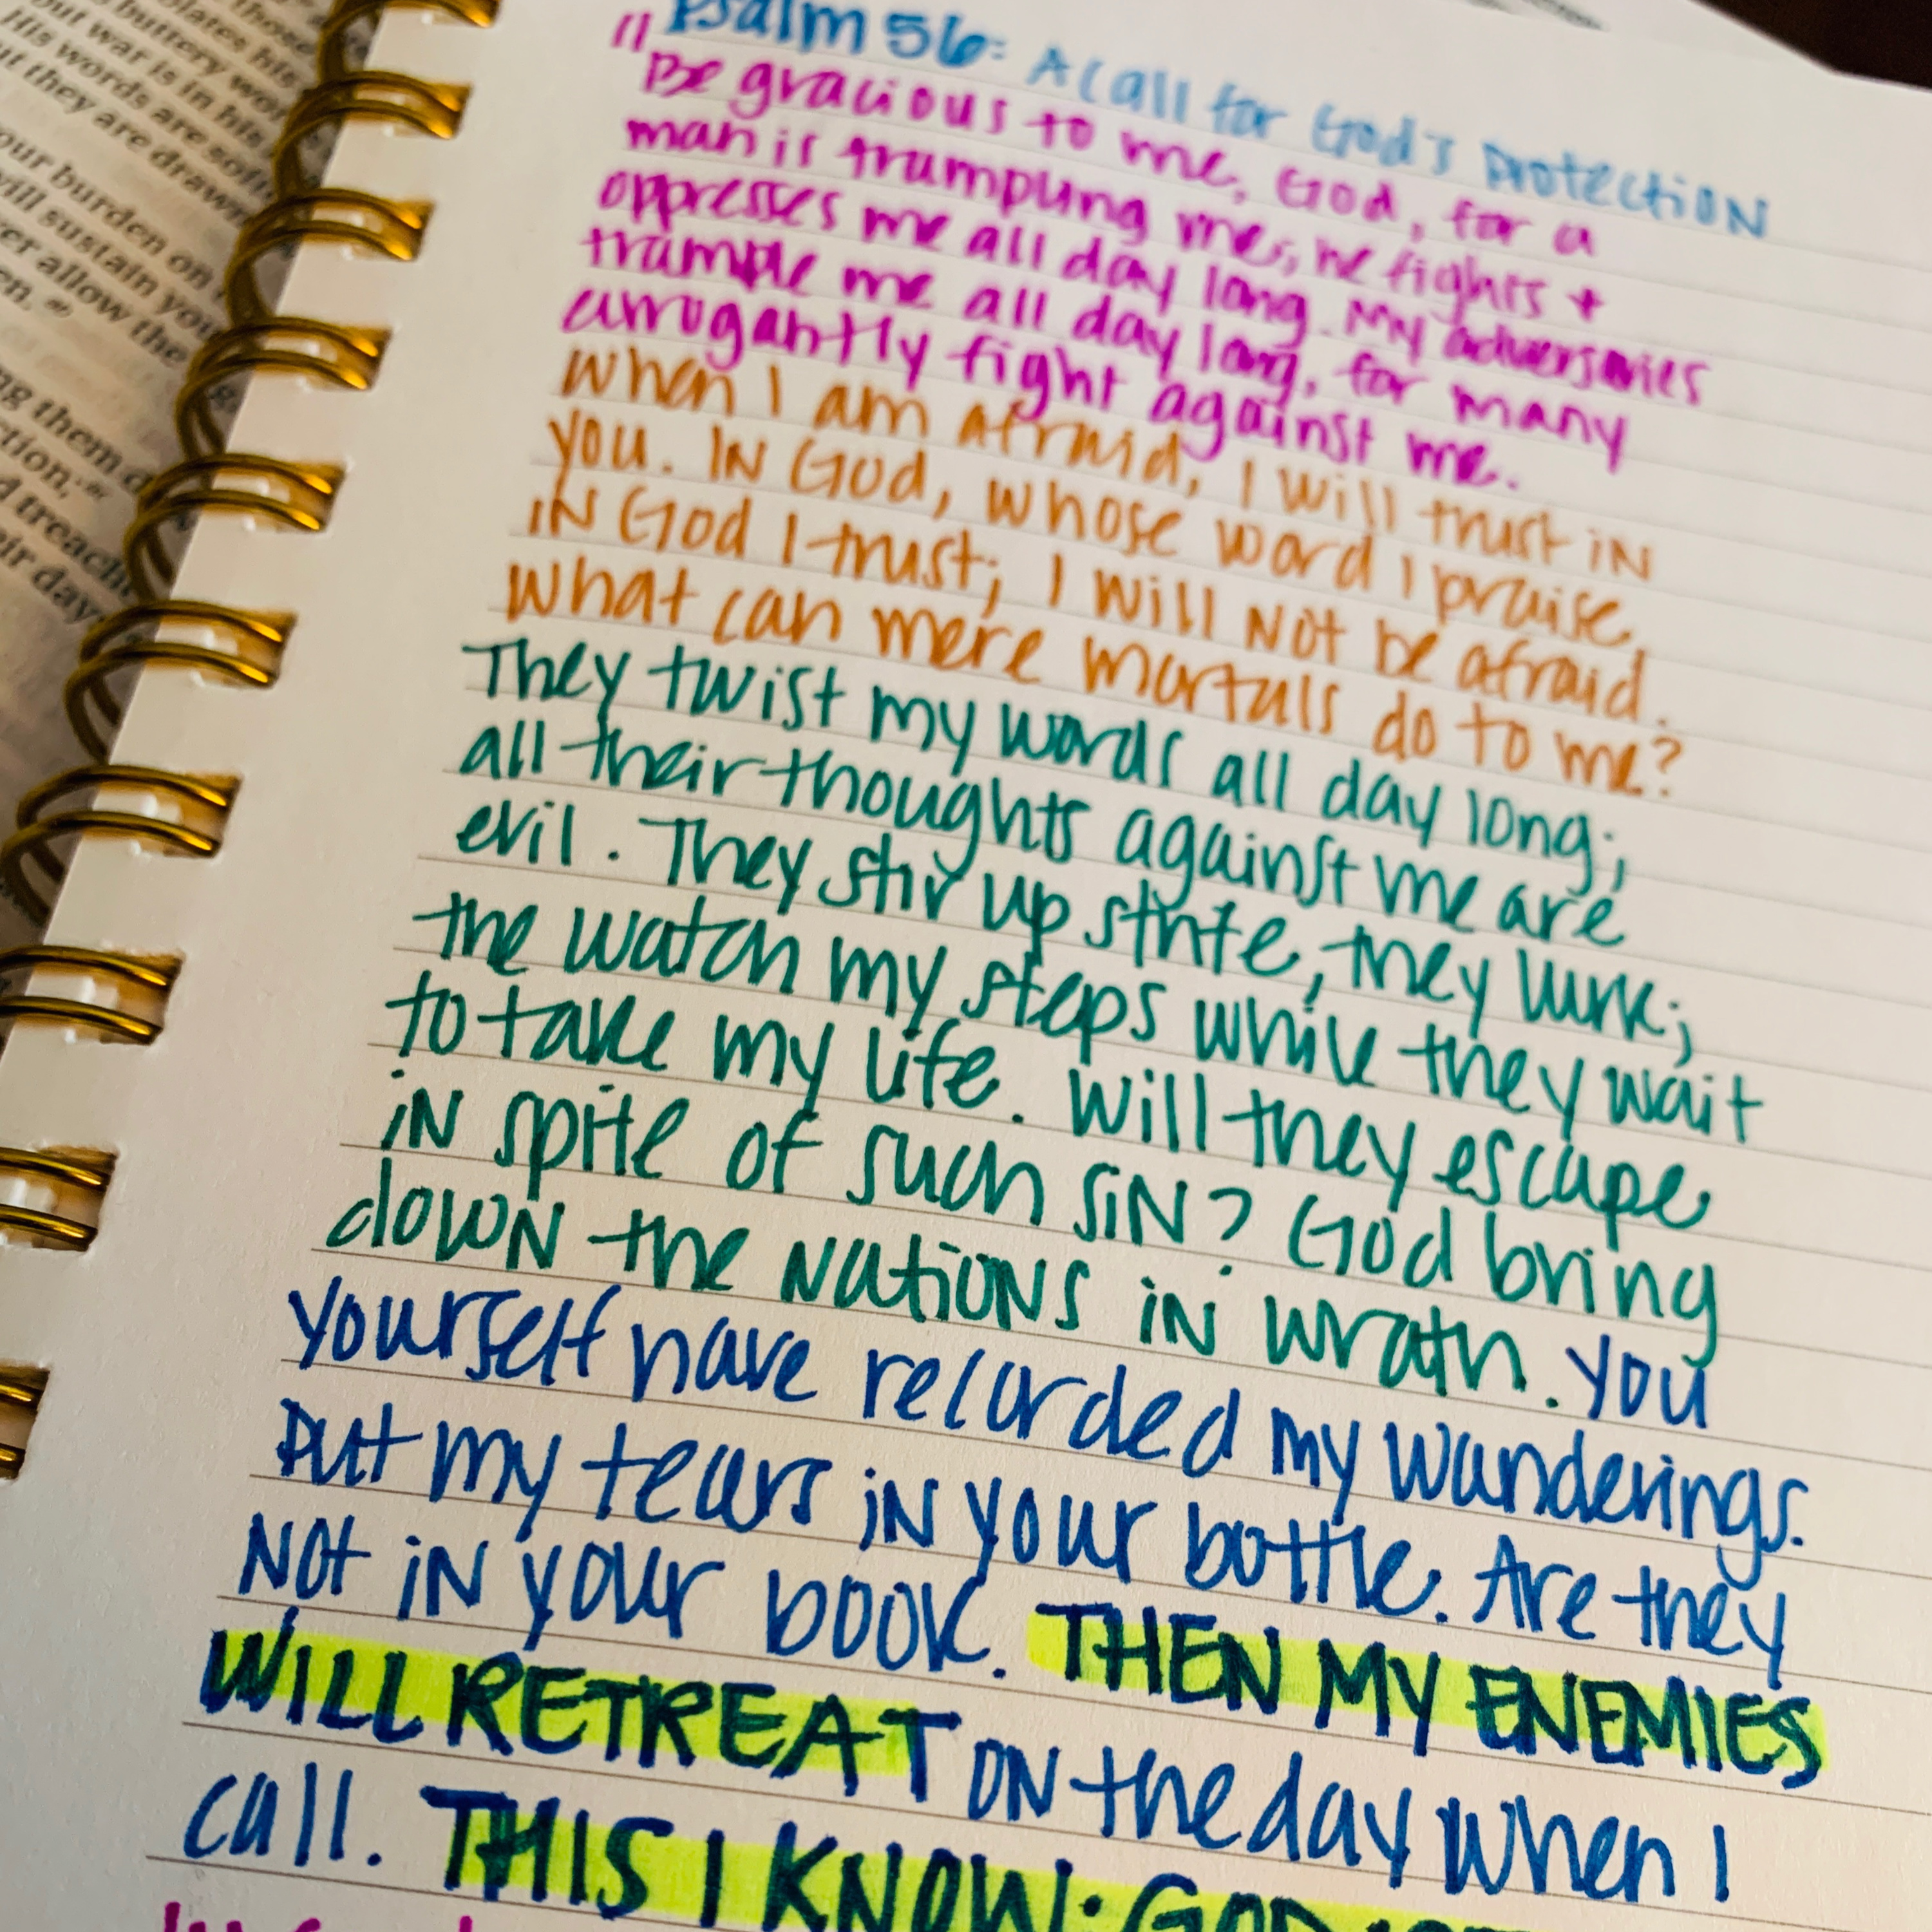 olates his
buttery wor
out war is in his
His words are soft
ut they are drawn
our burden on
will sustain you
er allow the
en.
ng them d
ction,
d treach
eir day
Psalm 56: A call for God's protection
"Be gracious to me, God, for a
man is trampling me; he fights +
oppresses me all day long. My adversaries
trample me all day long, for many
arrogantly fight against me.
When I am afraid, I will trust in
you. In God, whose word I praise,
in God I trust; I will not be afraid.
What can mere mortals do to me?
They twist my words all day long;
all their thoughts against me are
evil. They stir up strife, they lurk;
the watch my steps while they wait
to take my life. Will they escape
in spite of such sin? God bring
down the nations in wrath. You
yourself have recorded my wanderings.
Put my tears in your bottle. Are they
not in your book. THEN MY ENEMIES
WILL RETREAT on the day when I
call. THIS I KNOW: GOD